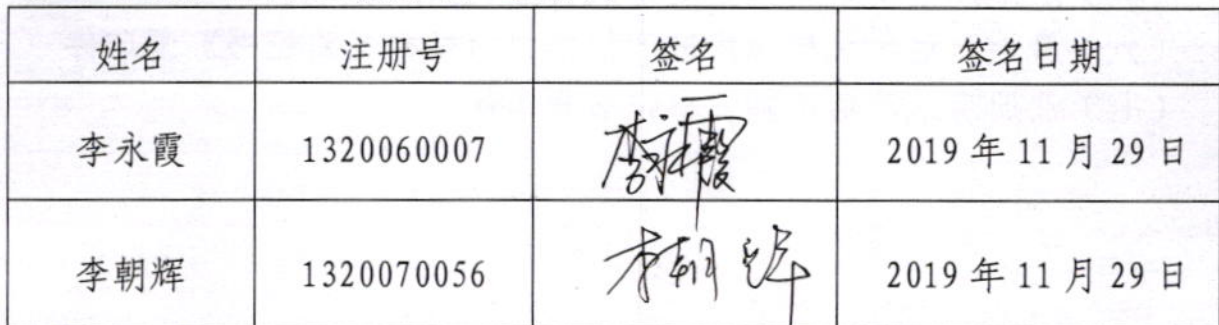 姓名 注册号 签名 签名日期
李永霞 1320060007 李永霞 2019年11月29日
李朝辉 1320070056 李朝辉 2019年11月29日